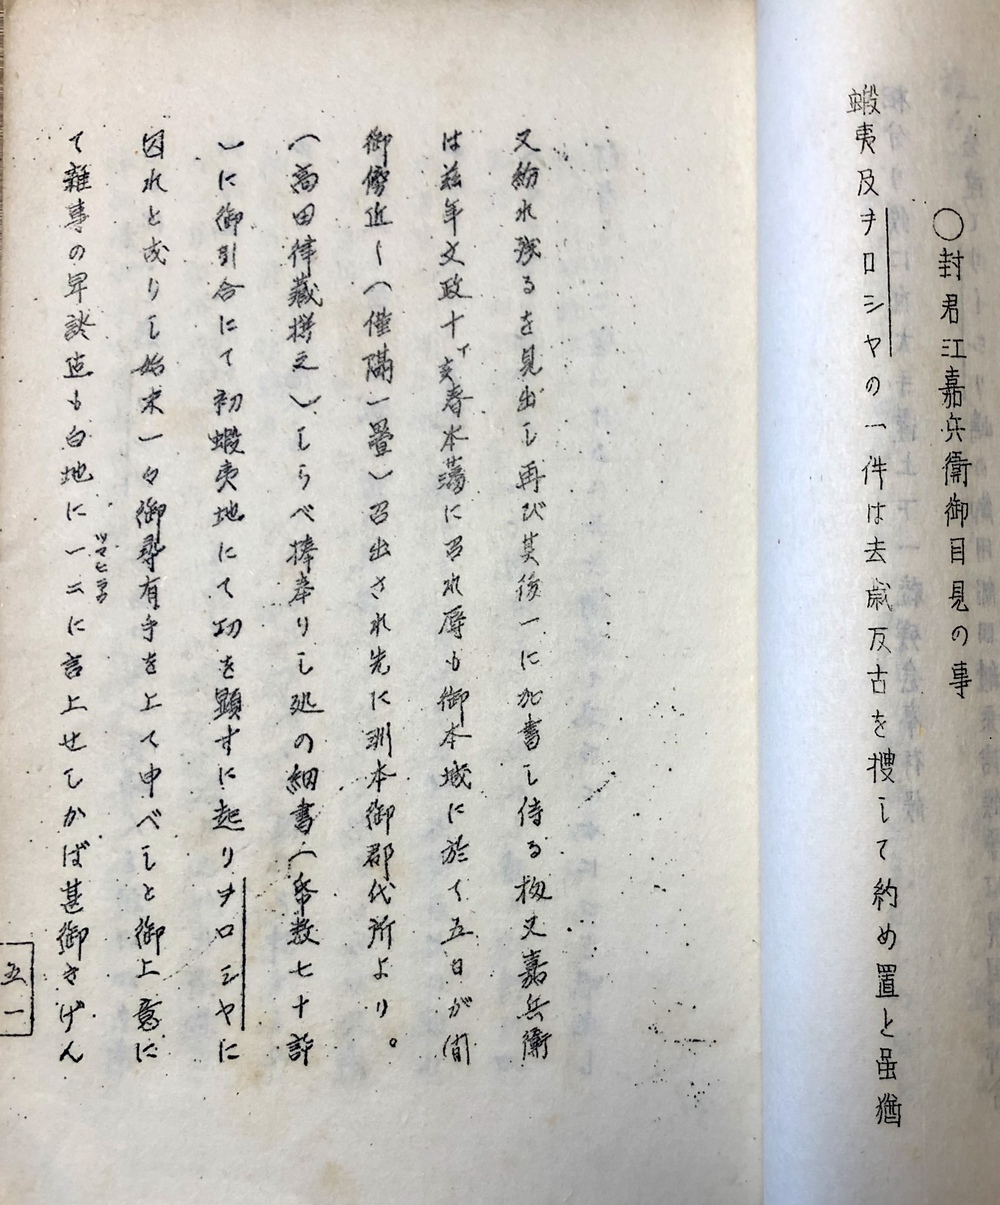 〇封君江嘉兵衛御目見の事
蝦夷及ヲロシヤの一件は去歳反古を捜して約め置と虽猶
又紛れ残るを見出し再び其後一に加書し侍る扨又嘉兵衛
は茲年文政十丁亥春本藩に召れ辱も御本城に於て五日が間
御傍近く(僅隔一畳)召出され先に洲本御郡代所より。
(高田律藏撰之)しらべ捧奉りし処の細書(帋数七十許
)に御引合にて初蝦夷地にて功を顕すに起りヲロシヤに
囚れと成りし始末一々御尋有手を上て申べしと御上意に
て雑事の早談迄も白地に一二に言上せしかば甚御きげん
ツマヒラ
五一